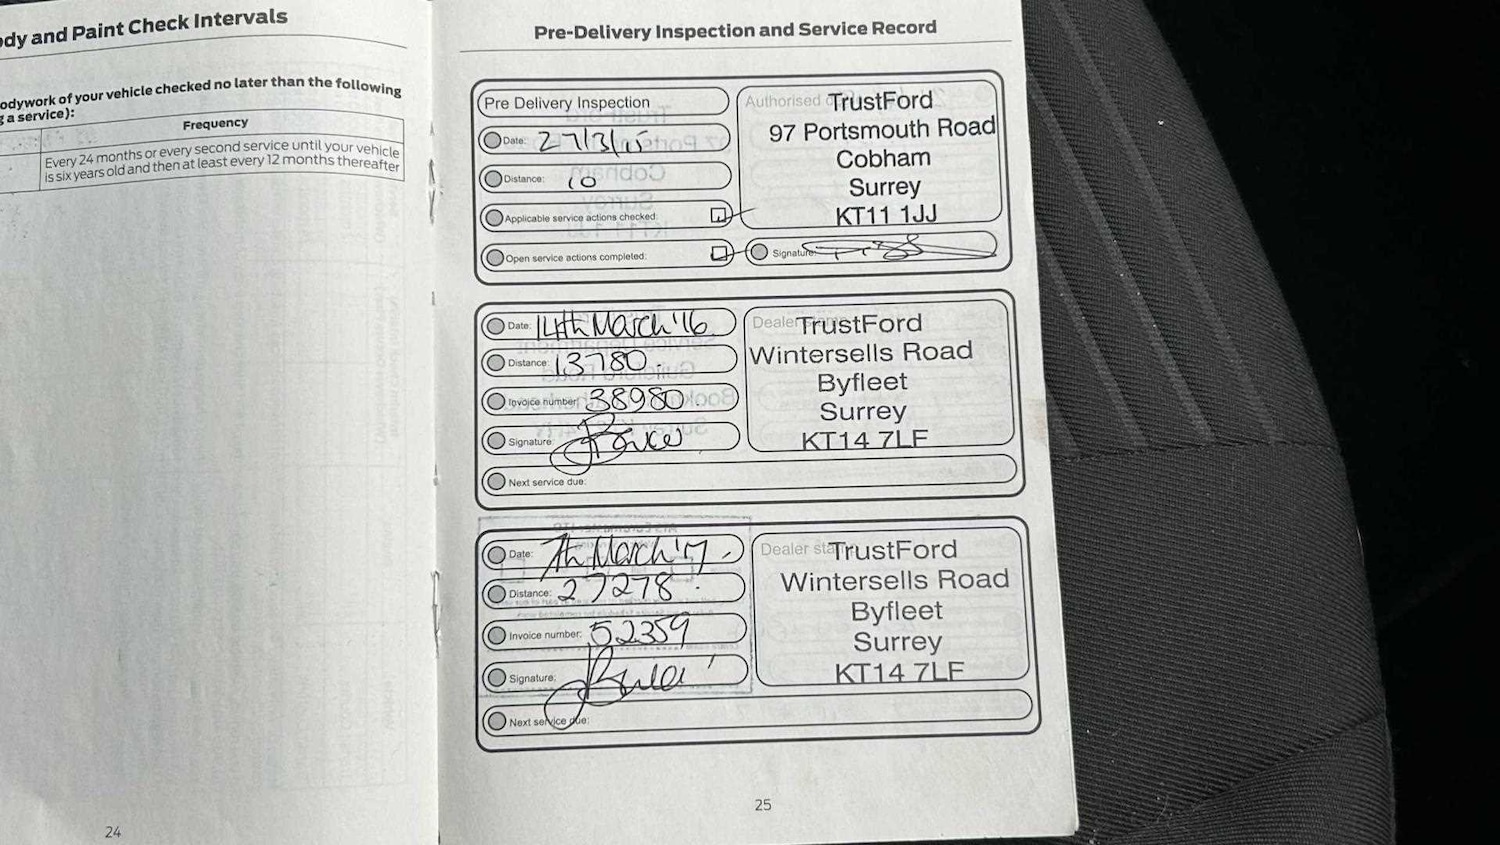 ody and Paint Check Intervals
odywork of your vehicle checked no later than the following
g a service):
Frequency
Every 24 months or every second service until your vehicle
is six years old and then at least every 12 months thereafter
24
Pre-Delivery Inspection and Service Record
Pre Delivery Inspection
Date: 27/3/15
Distance: 10
Applicable service actions checked:
Open service actions completed:
Authorised
TrustFord
97 Portsmouth Road
Cobham
Surrey
KT11 1JJ
Signature:
Date: 14th March '16
Distance: 13780.
Invoice number: 38980
Signature:
Next service due:
Dealer
TrustFord
Wintersells Road
Byfleet
Surrey
KT14 7LF
Date: 7th March '17
Distance: 27278
Invoice number: 52359
Signature:
Next service due:
Dealer sta
TrustFord
Wintersells Road
Byfleet
Surrey
KT14 7LF
25